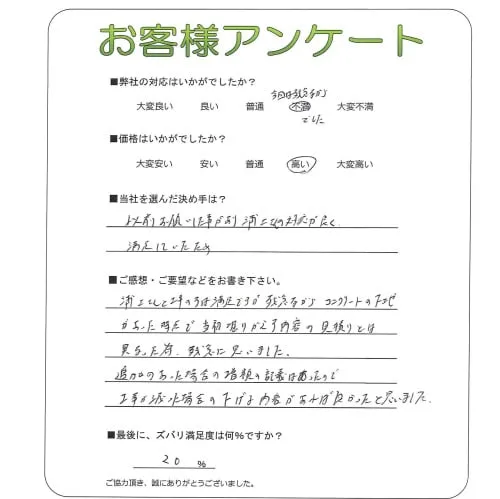 お客様アンケート
■弊社の対応はいかがでしたか？
今回は残念ながら
大変良い 良い 普通 不満 大変不満
でした
■価格はいかがでしたか？
大変安い 安い 普通 高い 大変高い
■当社を選んだ決め手は？
以前お願いした事があり 浦上さんの対応が良く、
満足していたため
■ご感想・ご要望などをお書き下さい。
浦上さんと工事の方は満足ですが 残念ながら コンクリートの下地
があった時点で当初堀りから予内容の見積りとは
異なった為、残念に思いました。
追加のあった場合の増額の記載はあったので
工事が減った場合の下げる内容があれば良かったと思いました。
■最後に、ズバリ満足度は何%ですか？
20 %
ご協力頂き、誠にありがとうございました。